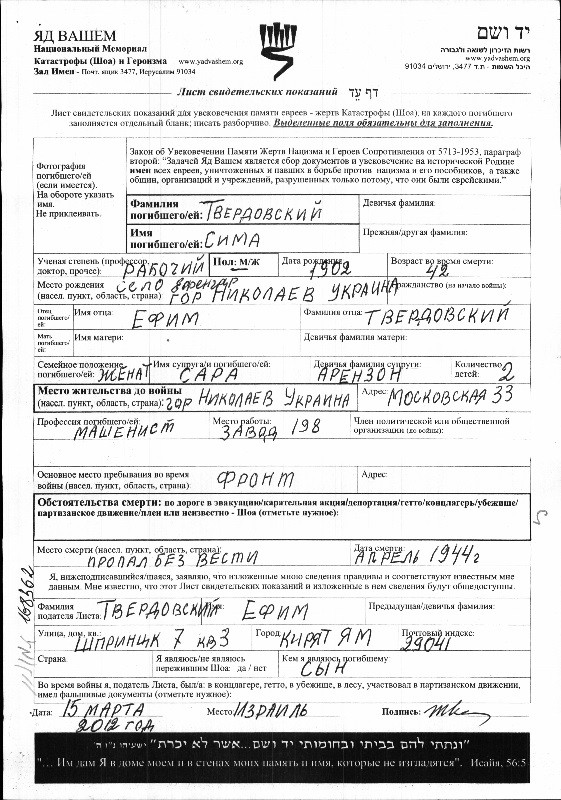 ЯД ВАШЕМ
יד ושם
Национальный Мемориал
Катастрофы (Шоа) и Героизма www.yadvashem.org
רשות הזיכרון לשואה ולגבורה
www.yadvashem.org
Зал Имен - Почт. ящик 3477, Иерусалим 91034
היכל השמות - ת.ד 3477, ירושלים 91034
Лист свидетельских показаний דף עד
Лист свидетельских показаний для увековечения памяти евреев - жертв Катастрофы (Шоа); на каждого погибшего
заполняется отдельный бланк; писать разборчиво. Выделенные поля обязательны для заполнения.
Фотография
погибшего/ей
(если имеется).
На обороте указать
имя.
Не приклеивать.
Закон об Увековечении Памяти Жертв Нацизма и Героев Сопротивления от 5713-1953, параграф
второй: "Задачей Яд Вашем является сбор документов и увековечение на исторической Родине
имен всех евреев, уничтоженных и павших в борьбе против нацизма и его пособников, а также
общин, организаций и учреждений, разрушенных только потому, что они были еврейскими."
Фамилия
погибшего/ей: ТВЕРДОВСКИЙ
Девичья фамилия:
Имя
погибшего/ей: СИМА
Прежняя/другая фамилия:
Ученая степень (профессор,
доктор, прочее): РАБОЧИЙ
Пол: м/ж
Дата рождения: 1902
Возраст во время смерти: 42
Место рождения
(насел. пункт, область, страна) село
ГОР НИКОЛАЕВ УКРАИНА
Гражданство (на начало войны):
Отец
погибшего/
ей:
Имя отца: ЕФИМ
Фамилия отца: ТВЕРДОВСКИЙ
Мать
погибшего/
ей:
Имя матери:
Девичья фамилия матери:
Семейное положение
погибшего/ей: ЖЕНАТ
Имя супруга/и погибшего/ей: САРА
Девичья фамилия супруги: АРЕНЗОН
Количество
детей: 2
Место жительства до войны
(насел. пункт, область, страна): ГОР НИКОЛАЕВ УКРАИНА
Адрес: МОСКОВСКАЯ 33
Профессия погибшего/ей: МАШЕНИСТ
Место работы: ЗАВОД 198
Член политической или общественной
организации (до войны):
Основное место пребывания во время
войны (насел. пункт, область, страна): ФРОНТ
Адрес:
Обстоятельства смерти: по дороге в эвакуацию/карательная акция/депортация/гетто/концлагерь/убежище/
партизанское движение/плен или неизвестно - Шоа (отметьте нужное):
Место смерти (насел. пункт, область, страна): ПРОПАЛ БЕЗ ВЕСТИ
Дата смерти: АПРЕЛЬ 1944г
Я, нижеподписавшийся/аяся, заявляю, что изложенные мною сведения правдивы и соответствуют известным мне
данным. Мне известно, что этот Лист свидетельских показаний и изложенные в нем сведения будут общедоступны.
Фамилия
подателя Листа: ТВЕРДОВСКИЙ
Имя: ЕФИМ
Предыдущая/девичья фамилия:
Улица, дом, кв.: ШПРИНЦАК 7 кв 3
Город: КИРЯТ ЯМ
Почтовый индекс: 29041
Страна
Я являюсь/не являюсь
пережившим Шоа: да / нет
Кем я являюсь погибшему: СЫН
Во время войны я, податель Листа, был/а: в концлагере, гетто, в убежище, в лесу, участвовал в партизанском движении,
имел фальшивые документы (отметьте нужное):
Дата: 15 МАРТА
2012 ГОД
Место: ИЗРАИЛЬ
Подпись:
168362
"ונתתי להם בביתי ובחומותי יד ושם...אשר לא יכרת" ישעיהו נ"ו ה'
"... Им дам Я в доме моем и в стенах моих память и имя, которые не изгладятся". Исайя, 56:5